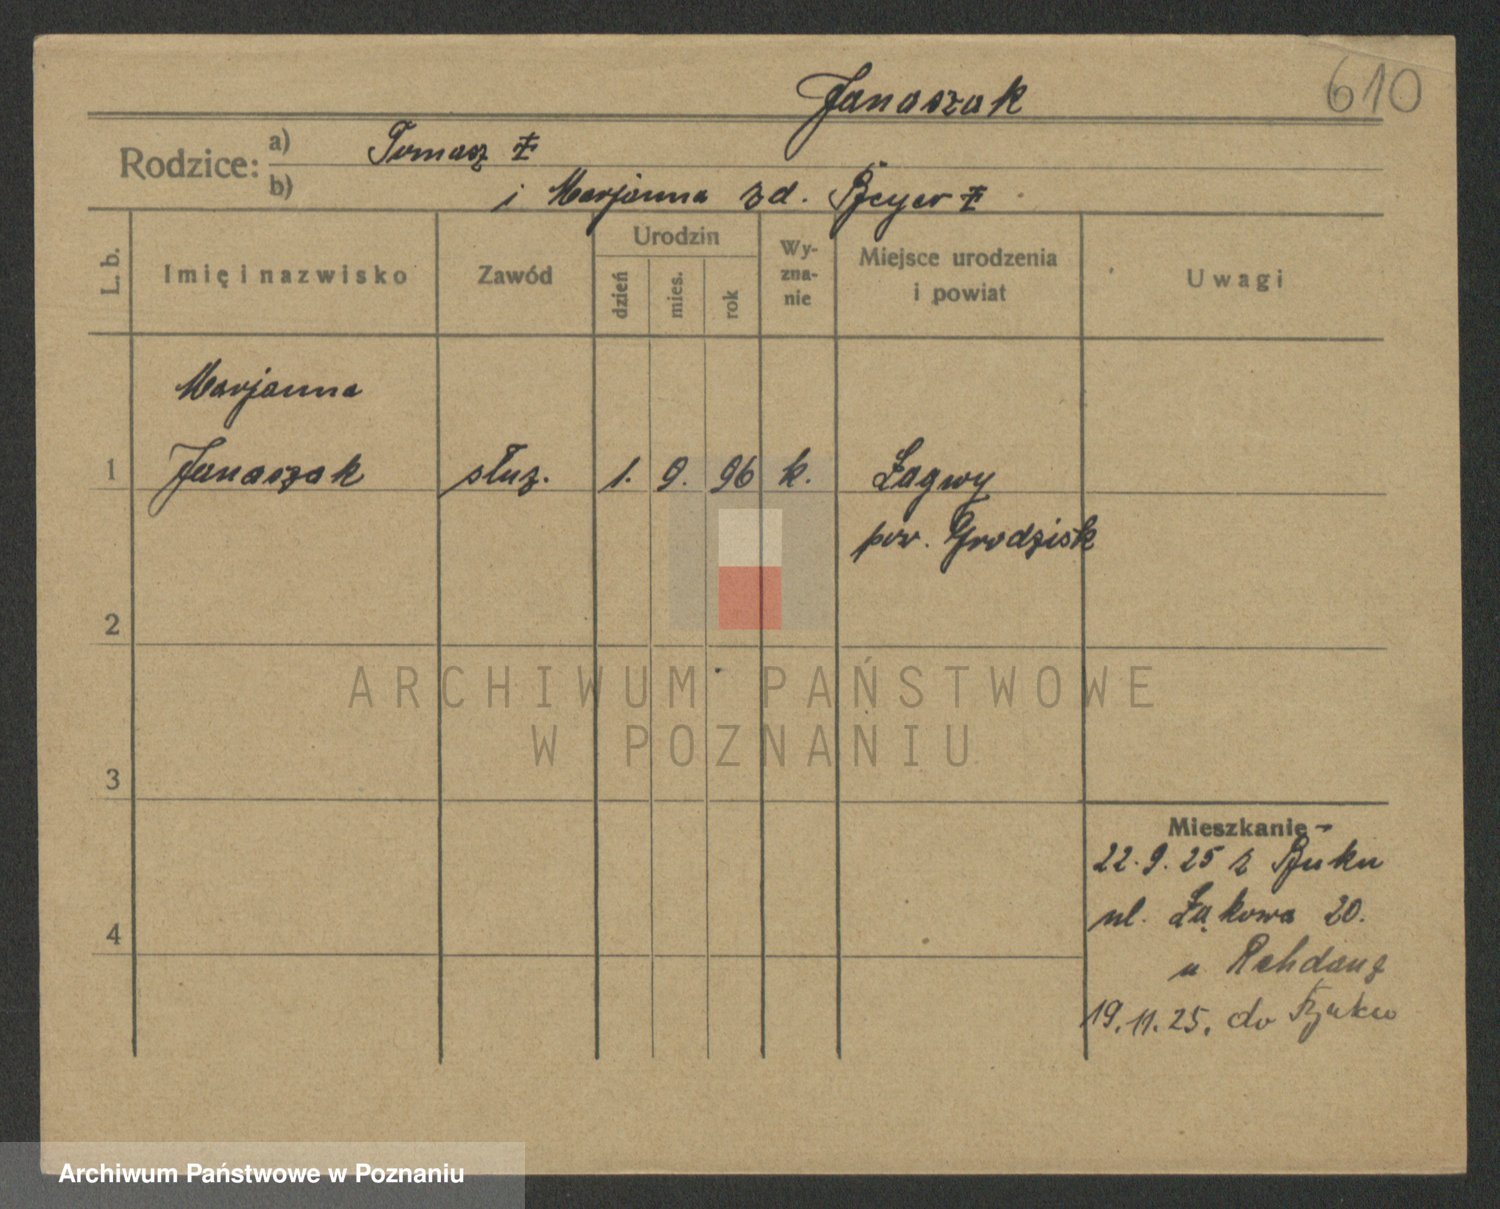 Janaszak
610
Rodzice:
a) Tomasz ‡
b) i Marjanna zd. Beyer ‡
L. b.
Imię i nazwisko
Zawód
Urodzin
dzień
mies.
rok
Wy-
zna-
nie
Miejsce urodzenia
i powiat
Uwagi
Marjanna
1 Janaszak służ. 1. 9. 96 k. Łagwy
pow. Grodzisk
2
ARCHIWUM PAŃSTWOWE
W POZNANIU
3
Mieszkanie
22.9.25 z Buku
ul. Łąkowa 20.
4
u Rehdanz
19.11.25. do Buku
Archiwum Państwowe w Poznaniu